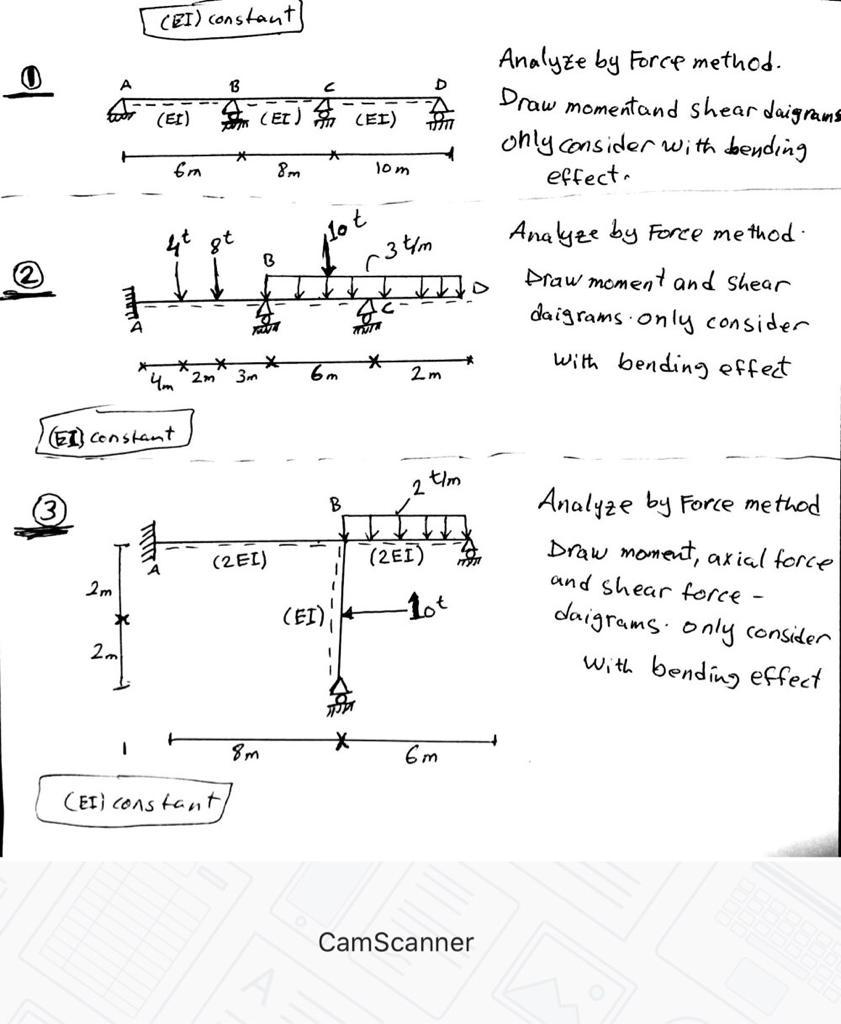 (EI) constant
①
A B C D
(EI) (EI) (EI)
6m 8m 10m
Analyze by Force method.
Draw moment and shear daigrams
only consider with bending
effect.
②
4t 8t B 10t 3 t/m D
A C
4m 2m 3m 6m 2m
Analyze by Force method.
Draw moment and shear
daigrams. only consider
with bending effect
(EI) constant
③
B 2 t/m
A (2EI) (2EI)
2m
(EI) 10t
2m
8m 6m
Analyze by Force method
Draw moment, axial force
and shear force -
daigrams. only consider
with bending effect
(EI) constant
CamScanner